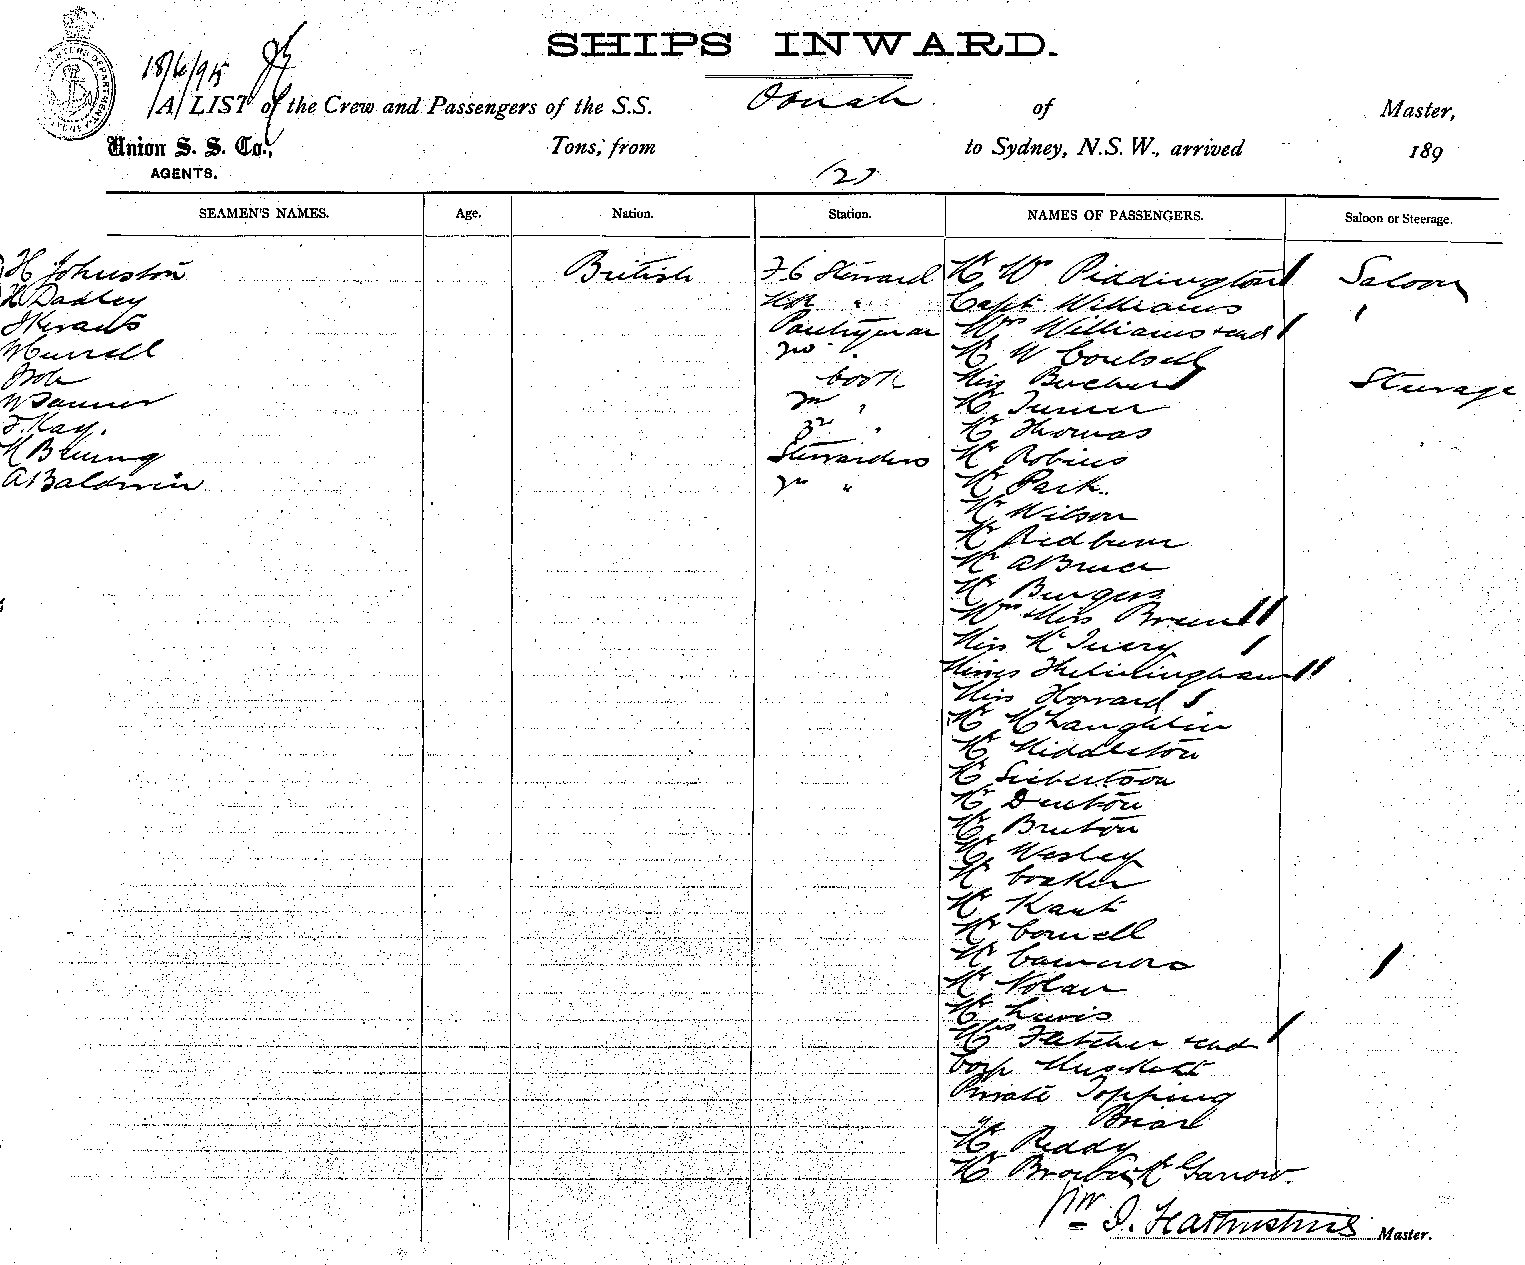 SHIPS INWARD.
18/6/95
A LIST of the Crew and Passengers of the S.S. Oonah of Master,
Union S. S. Co., Tons, from to Sydney, N.S.W., arrived 189
AGENTS.
(2)
SEAMEN'S NAMES. Age. Nation. Station. NAMES OF PASSENGERS. Saloon or Steerage.
H Johnston British F.C Steward Mr Mrs Piddington Saloon
H Dadley " Capt Williams
Pantryman Mrs Williams & chd "
2nd Mr W
Cook Miss Steerage
W Tanner 2nd " Mr Turner
F. Kay. 3rd " Mr Thomas
Stewardess Mr Robins
A Baldwin 2nd " Mr Park
Mr Wilson
Mr Redburn
Mr A Bruce
Mr Burgess
Mrs Miss
Miss
Misses
Miss Howard
Mr McLaughlin
Mr Middleton
Mr
Mr Denton
Mr Bruton
Mr Wesley
Mr Coaker
Mr Kant
Mr Connell
Mr
Mr Nolan
Mr Lewis
Mrs Fletcher & chd
Corp
Private Topping
" Briar
Mr Reddy
Mr Mr Garrow.
Master.